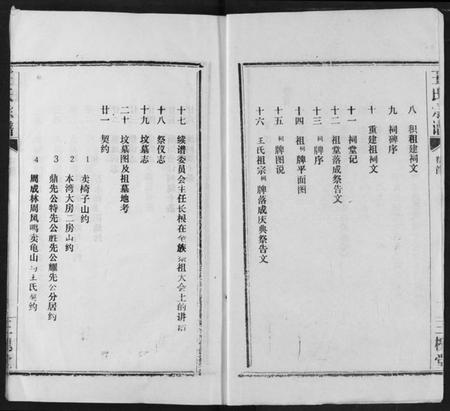 八 积租建祠文
九 祠碑序
十 重建祖祠文
十一 祠堂记
十二 祖堂落成祭告文
十三 祠牌序
十四 祖祠牌平面图
十五 祠牌图说
十六 王氏祖宗祠牌落成庆典祭告文
三槐堂
十七 续谱委员会主任长根在全族祭祖大会上的讲话
十八 祭仪志
十九 坟墓志
二十 坟墓图及祖墓地考
廿一 契约
1 卖椅子山约
2 本湾大房二房山约
3 鼎先公特先公胜先公耀先公分居约
4 周成林周凤鸣卖龟山与王氏契约